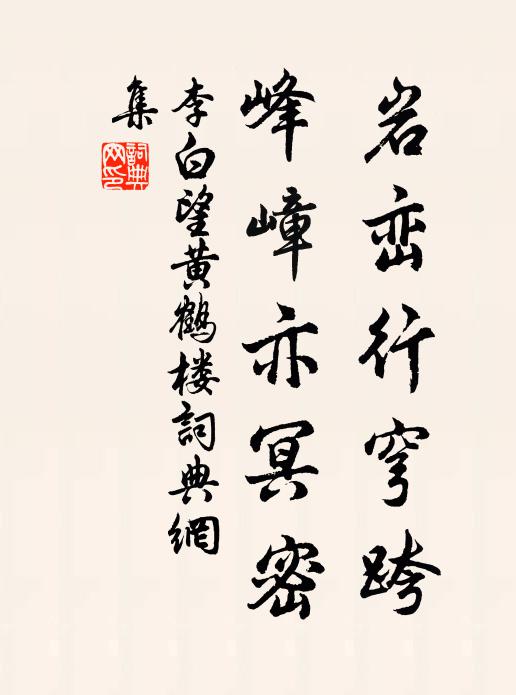 岩峦行穹跨
峰嶂亦冥密
李白望黄鹤楼詞典網
集
詞典
网印